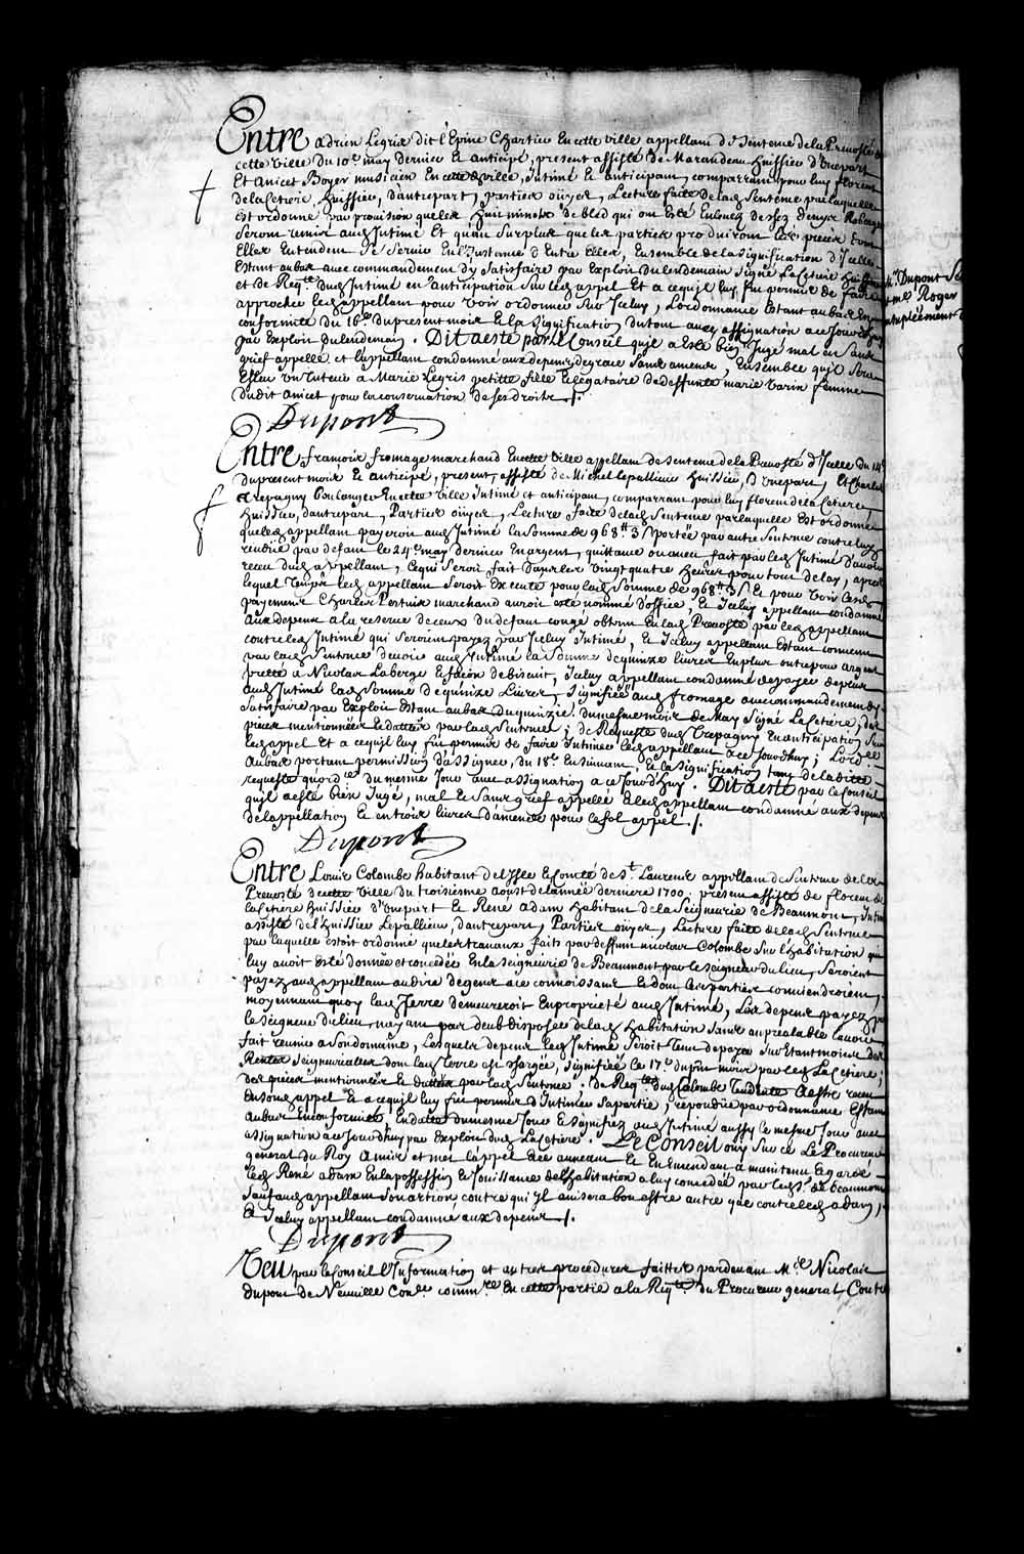 Entre adrien Legris dit l'Epine Chartier En cette ville appellant de Sentence de la Prevosté de
cette Ville du 10e may dernier Et anticipé, present assisté de Marandeau huissier d'Unepart
Et Anicet Boyer musicien En cette d. ville, Intimé Et anticipant, comparant pour luy florent
de la Cetiere, huissier, d'autrepart, parties ouÿes, Lecture faite de lad. Sentence par laquelle
Est ordonné par provision que les huit minots de bled qui ont Esté Enlevez de chez denys Roberge
Seront remis aud. Intimé Et qu'au Surplus que les parties produiront les pieces dont
Elles Entendent Se Servir En l'Instance d'Entre Elles, Ensemble de la Signification d'Icelle
Estant aubas avec commandement d'y Satisfaire par Exploit du lendemain Signé La Cetiere huissier
et de Reqte dud. Intimé en anticipation Sur led. appel Et a ce qu'il luy fut permis de faire
approcher led. appellant pour Voir ordonner Sur Iceluy, L'ordonnance Estant au bas En
conformité du 16e du present mois Et la Signification du tout avec assignation a ce Jourd'huy
par Exploit du lendemain. Dit a esté par le Conseil qu'il a Esté bien Jugé mal et Sans
grief appellé et l'appellant condamné aux depens de grace Sans amende, Ensemble qu'il Sera
Esleu un tuteur a Marie Legris petitte fille Et legataire de deffunte marie Varin femme
dudit Anicet pour la conservation de Ses droits ./.
Dupont
Entre francois fromage marchand En cette Ville appellant de Sentence de la Prevosté d'Icelle du 14e
du present mois Et anticipé, present, assisté de Michel Lepallieur huissier, d'Unepart, Et Charles
Trepagny boulanger En cette ville Intimé et anticipant, comparant pour luy florent de la Cetiere
huissier, d'autrepart, Parties ouÿes, Lecture faite de lad. Sentence par laquelle Est ordonné
que led. appellant payeroit aud. Intimé la Somme de 968 tt 3 s portée par autre Sentence contre luy
rendüe par defaut le 24e may dernier En argent, quittance ou aveu fait par led. Intimé d'avoir
receu dud. appellant, Ce qui Seroit fait dans les Vingt quatre heures pour tout delay, apres
lequel temps led. appellant Seroit Executé pour lad. Somme de 968 tt 3 s Et pour Voir led.
payement Charles Perthuis marchand auroit esté nommé d'office, Et Iceluy appellant condamné
aux depens a la reserve de ceux du defaut congé obtenu En lad. Prevosté par led. appellant
contre led. Intimé qui Seroient payez par Iceluy Intimé, Et Iceluy appellant Estant convenu
par lad. Sentence devoir aud. Intimé la Somme de quinze livres En plus outre pour argent
presté a Nicolas Laberge Et façon de biscuit, Iceluy appellant condamné de payer de plus
aud. Intimé lad. Somme de quinze Livres, Signifiée aud. fromage avec commandement d'y
Satisfaire par Exploit Estant au bas du quinzie. du mesme mois de May Signé La Cetiere, des
pieces mentionnées Et dattées par lad. Sentence; de Requeste dud. Trepagny En anticipation Sur
led. appel Et a ce qu'il luy fut permis de faire Intimer led. appellant a ce Jourdhuy; L'ordce
au bas portant permission d'assigner, du 18e En Suivant, Et la Signification tant de la ditte
requeste qu'ordce du mesme Jour avec assignation a ce Jourd'huy. Dit a esté par le Conseil
qu'il a esté bien Jugé, mal Et Sans grief appellé Et led. appellant condamné aux depens
de l'appellation Et en trois livres d'amende pour le fol appel ./.
Dupont
Entre Louis Colombe habitant de l'Isle Et Comté de St. Laurens appellant de Sentence de la
Prevosté de cette Ville du troisiesme aoust de l'année derniere 1700. present assisté de florent de
la Cetiere huissier d'Unepart Et René adam habitant de la Seigneurie de Beaumont, Intimé
assisté de l'huissier Lepallieur, d'autrepart, Parties ouÿes, Lecture faite de lad. Sentence
par laquelle estoit ordonné que les travaux faits par deffunt nicolas Colombe Sur l'habitation qui
luy avoit esté donnée et concedée En la Seigneurie de Beaumont par le Seigneur du lieu, Seroient
payez aud. appellant au dire de gens a ce connoissans Et dont les parties conviendroient,
moyennant quoy lad. Terre demeureroit En proprieté aud. Intimé, Les depens payez par
le Seigneur du lieu, n'ayant pas deub disposer de lad. habitation Sans au prealable l'avoir
fait reunir a Son domaine, Lesquels depens led. Intimé Seroit tenu de payer Sur Et tant moins des
Rentes Seigneurialles dont lad. terre est chargée, Signifiée le 17e dud. mois par led. La Cetiere;
des pieces mentionnées Et dattées par lad. Sentence. de Reqte dud. Colombe Tendante a estre receu
En Son appel Et a ce qu'il luy fut permis d'Intimer Sa partie, repondüe par ordonnance Estant
au bas En conformité En datte du mesme Jour Et Signifiez aud. Intimé aussy le mesme Jour avec
assignation a ce Jourdhuy par Exploit dud. La Cetiere. Le Conseil ouy Sur ce Le Procureur
general du Roy a mis et met l'appel Et ce au neant Et En Emendant a maintenu Et gardé
led. René adam En la possession Et Jouissance de l'habitation a luy concedée par led. Sr. de Beaumont
Sauf aud. appellant Son action contre qui Il avisera bon estre autre que contre led. adam,
Et Iceluy appellant condamné aux depens ./.
Dupont
Veu par le Conseil l'Information et autres procedures faittes pardevant Me. Nicolas
dupont de Neuville Coner. commre En cette partie a la Reqte du Procureur general Contre
Mr. Dupont Se
Roger